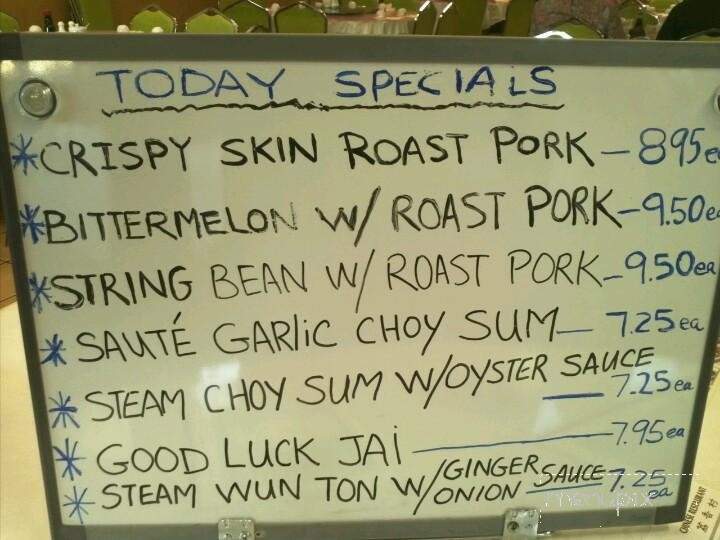 TODAY SPECIALS
*CRISPY SKIN ROAST PORK - 895ea
*BITTERMELON W/ ROAST PORK - 9.50ea
*STRING BEAN W/ ROAST PORK - 9.50ea
* SAUTÉ GARlic CHOY SUM - 7.25 ea
* STEAM CHOY SUM W/OYSTER SAUCE
- 7.25 ea
* GOOD LUCK JAi - 7.95 ea
* STEAM WUN TON W/ GINGER ONION SAUCE 7.25 ea
menupix
CHINESE RESTAURANT